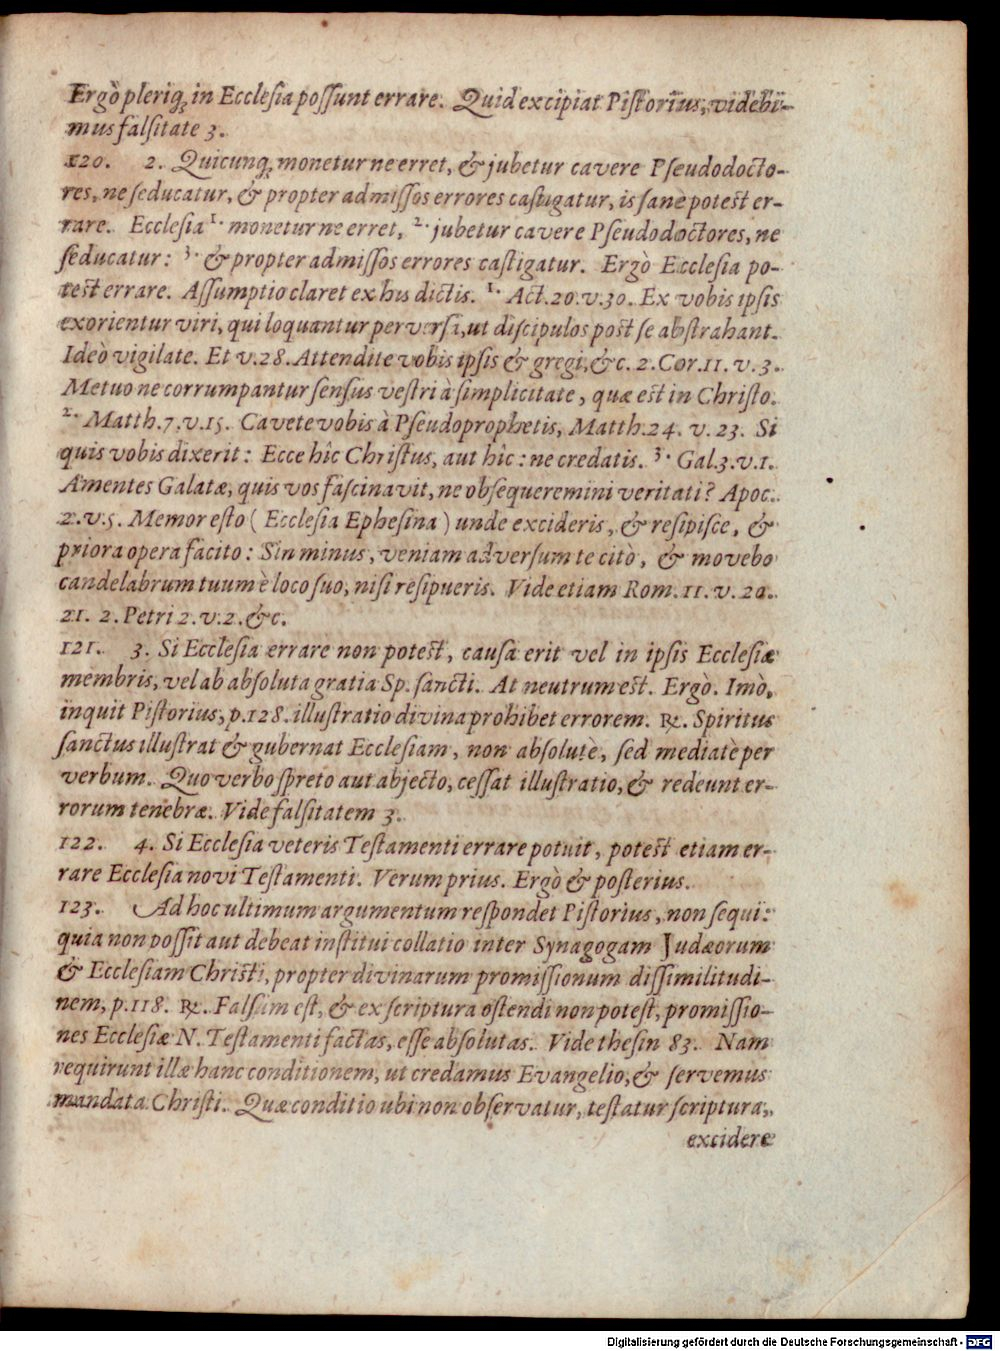 Ergò pleriq; in Ecclesia possunt errare. Quid excipiat Pistorius, videbi-
mus falsitate 3.
120. 2. Quicunq; monetur ne erret, & jubetur cavere Pseudodocto-
res, ne seducatur, & propter admissos errores castigatur, is sanè potest er-
rare. Ecclesia 1. monetur ne erret, 2. jubetur cavere Pseudodoctores, ne
seducatur: 3. & propter admissos errores castigatur. Ergò Ecclesia po-
test errare. Assumptio claret ex his dictis. 1. Act. 20. v. 30. Ex vobis ipsis
exorientur viri, qui loquantur perversa, ut discipulos post se abstrahant.
Ideò vigilate. Et v. 28. Attendite vobis ipsis & gregi, &c. 2. Cor. 11. v. 3.
Metuo ne corrumpantur sensus vestri à simplicitate, quæ est in Christo.
2. Matth. 7. v. 15. Cavete vobis à Pseudoprophetis, Matth. 24. v. 23. Si
quis vobis dixerit: Ecce hîc Christus, aut hîc: ne credatis. 3. Gal. 3. v. 1.
Amentes Galatæ, quis vos fascinavit, ne obsequeremini veritati? Apoc.
2. v. 5. Memor esto (Ecclesia Ephesina) unde excideris, & resipisce, &
priora opera facito: Sin minus, veniam adversum te citò, & movebo
candelabrum tuum è loco suo, nisi resipueris. Vide etiam Rom. 11. v. 20.
21. 2. Petri 2. v. 2. &c.
121. 3. Si Ecclesia errare non potest, causa erit vel in ipsis Ecclesiæ
membris, vel ab absoluta gratia Sp. sancti. At neutrum est. Ergò. Imò,
inquit Pistorius, p. 128. illustratio divina prohibet errorem. ℞. Spiritus
sanctus illustrat & gubernat Ecclesiam, non absolutè, sed mediatè per
verbum. Quo verbo spreto aut abjecto, cessat illustratio, & redeunt er-
rorum tenebræ. Vide falsitatem 3.
122. 4. Si Ecclesia veteris Testamenti errare potuit, potest etiam er-
rare Ecclesia novi Testamenti. Verum prius. Ergò & posterius.
123. Ad hoc ultimum argumentum respondet Pistorius, non sequi:
quia non possit aut debeat institui collatio inter Synagogam Judæorum
& Ecclesiam Christi, propter divinarum promissionum dissimilitudi-
nem, p. 118. ℞. Falsum est, & ex scriptura ostendi non potest, promissio-
nes Ecclesiæ N. Testamenti factas, esse absolutas. Vide thesin 83. Nam
requirunt illæ hanc conditionem, ut credamus Evangelio, & servemus
mandata Christi. Quæ conditio ubi non observatur, testatur scriptura,
excidere
Digitalisierung gefördert durch die Deutsche Forschungsgemeinschaft - DFG